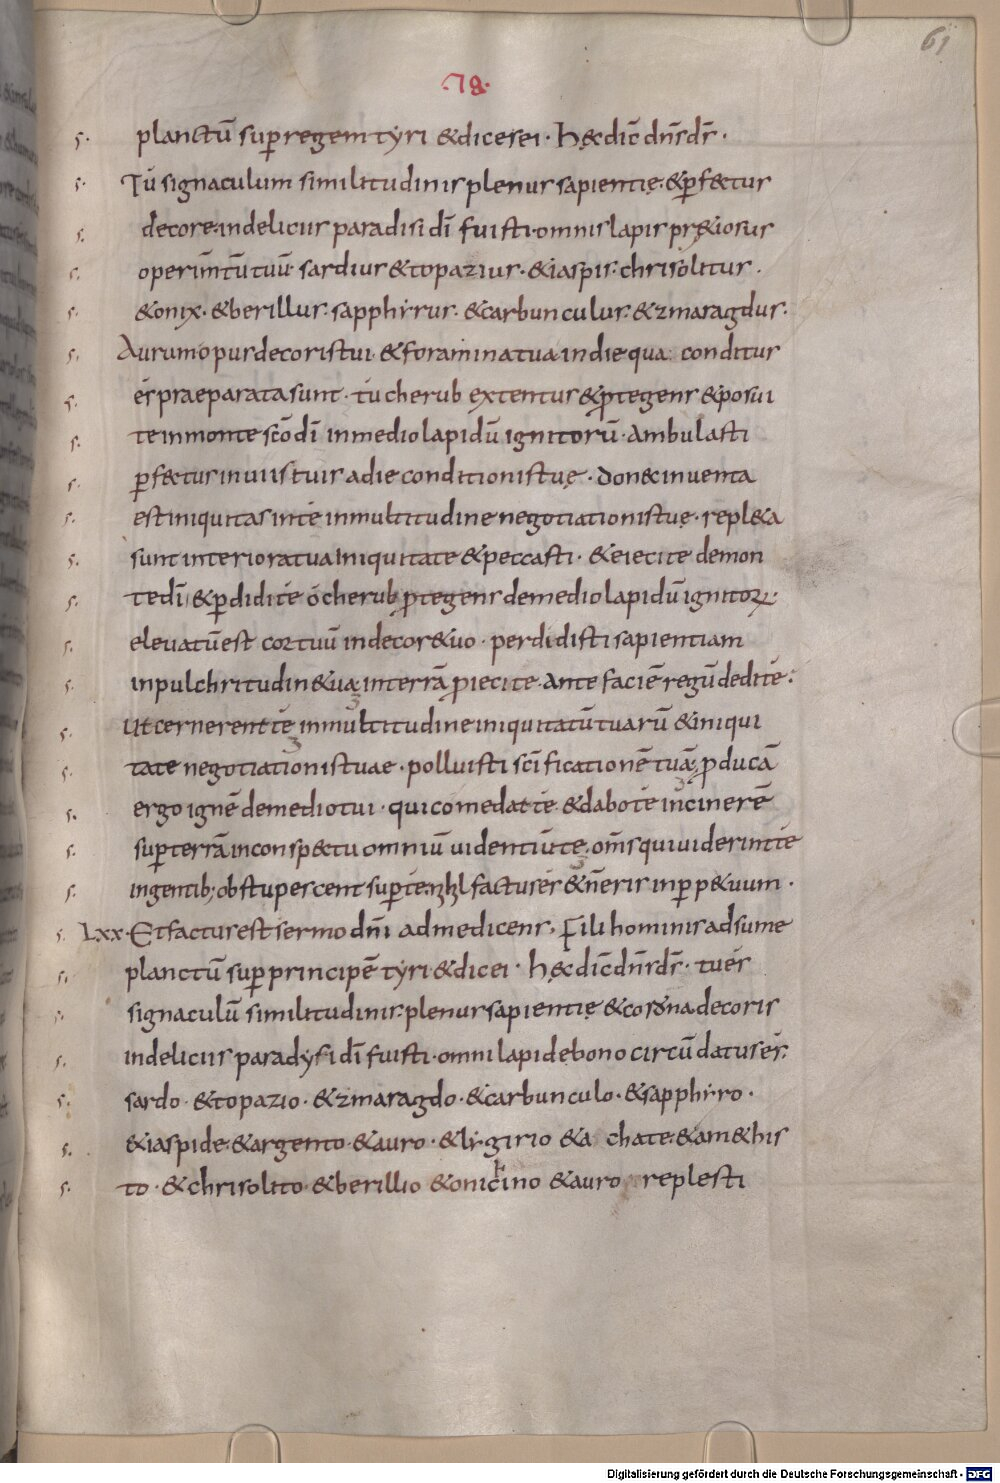 61
·78·
s· planctū sup regem tyri & dices ei · hęc dic̄ dn̄s ds̄ ·
s· Tu signaculum similitudinis plenus sapientię · & pfectus
s· decore · in deliciis paradisi dī fuisti · omnis lapis pręciosus
s· operim̄tū tuū · sardius & topazius · & iaspis · chrisolitus ·
s· & onix · & berillus · sapphirus · & carbunculus · & zmaragdus ·
s· Aurum opus decoris tui · & foramina tua in die qua conditus
s· és praeparata sunt · tú cherub extentus & ptegens & posui
s· te in monte scō dī in medio lapidū ignitorū · Ambulasti
s· pfectus in viis tuis a die conditionis tuę · donec inventa
s· est iniquitas in té in multitudine negotiationis tuę · repl&a
s· sunt interiora tua iniquitate & peccasti · & eieci te de mon
s· te dī & pdidi té ó cherub ptegens de medio lapidū ignitoꝝ ·
s· elevatū est cor tuū in decore tuo · perdidisti sapientiam
s· in pulchritudine tua, in terrā pieci te · Ante faciē regū dedi té ·
s· ut cernerent té in multitudine iniquitatū tuarū & iniqui
s· tate negotiationis tuae · polluisti scīficationē tuā, pducā
s· ergo ignē de medio tui · qui comedat té · & dabo té in cinerē
s· sup terrā in conspectu omniū videntiū te, om̄s qui viderint te
s· in gentib; obstupescent sup té, nihil factus és & n̄ eris in pp&uum ·
s· Lxx · Et factus est sermo dn̄i ad me dicens, Fili hominis adsume
s· planctū sup principē tyri & dic ei · hęc dic̄ dn̄s ds̄ · tu és
s· signaculū similitudinis · plenus sapientię & corona decoris
s· in deliciis paradysi dī fuisti · omni lapide bono circūdatus és ·
s· sardo · & topazio · & zmaragdo · & carbunculo · & sapphiro ·
s· & iaspide · & argento · & auro · & lygirio & a chate & am&his
s· to · & chrisolito · & berillio & onichino & auro replesti
Digitalisierung gefördert durch die Deutsche Forschungsgemeinschaft - DFG